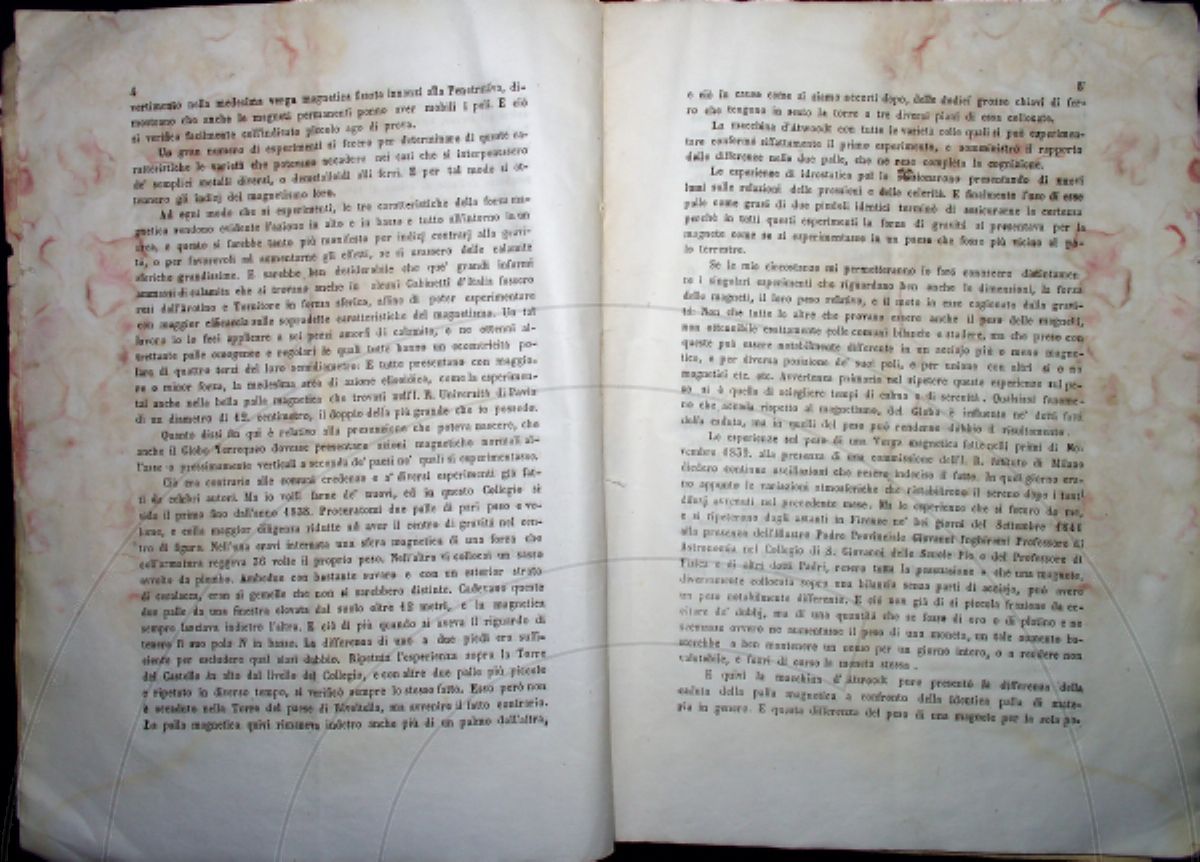 4
vertimento nella medesima verga magnetica innanzi alla Penetrativa, di-
mostrano che anche le magneti permanenti ponno aver mobili i poli. E ciò
si verifica facilmente coll'indicato piccolo ago di prova.
Un gran numero di esperimenti si fecero per determinare di queste ca-
ratteristiche le varietà che potessero accadere nei casi che si interponessero
de' semplici metalli diversi, o ai ferri. E per tal modo si ot-
tennero gli indizj del magnetismo loro.
Ad ogni modo che si esperimenti, le tre caratteristiche della forza ma-
gnetica rendono evidente l'azione in alto e in basso e tutto all'interno in un
e questo si farebbe tanto più manifesto per indizj contrarj alla gravi-
tà, o per favorevoli ad aumentarne gli effetti, se si avessero delle calamite
sferiche grandissime. E sarebbe ben desiderabile che que' grandi informi
ammassi di calamita che si trovano anche in alcuni Gabinetti d'Italia fossero
resi dall'Arotino e Tornitore in forma sferica, affine di poter esperimentare
con maggior efficacia sulle sopradette caratteristiche del magnetismo. Un tal
lavoro io lo feci applicare a sei pezzi amorfi di calamita, e ne ottenni al-
trettante palle omogenee e regolari le quali tutte hanno un eccentricità po-
lare di quattro terzi del loro semidiametro. E tutte presentano con maggio-
re o minor forza, la medesima area di azione elissoidica, come la esperimen-
tai anche nella bella palla magnetica che trovasi nell'I. R. Università di Pavia
di un diametro di 12. centimetri, il doppio della più grande che io possedo.
Quanto dissi fin qui è relativo alla presunzione che poteva nascere, che
anche il Globo Terrequeo dovesse presentare azioni magnetiche normali al-
l'asse o prossimamente verticali a seconda de' paesi ne' quali si esperimentasse.
Ciò era contrario alle comuni credenze e a' diversi esperimenti già fat-
ti da celebri autori. Ma io volli farne de' nuovi, ed in questo Collegio si
vide il primo fino dall'anno 1838. Procuratomi due palle di pari peso e vo-
lume, e colla maggior diligenza ridotte ad aver il centro di gravità nel cen-
tro di figura. Nell'una eravi internata una sfera magnetica di una forza che
coll'armatura reggeva 36 volte il proprio peso. Nell'altra vi collocai un sasso
avvolto da piombo. Ambedue con bastante sovero e con un esterior strato
di ceralacca, eran sì gemelle che non si sarebbero distinte. Cadevano queste
due palle da una finestra elevata dal suolo oltre 12 metri, e la magnetica
sempre lasciava indietro l'altra. E ciò di più quando si aveva il riguardo di
tenere il suo polo N in basso. La differenza di uno a due piedi era suffi-
ciente per escludere quel dubbio. Ripetuta l'esperienza sopra la Torre
del Castello in alto dal livello del Collegio, e con altre due palle più piccole
e ripetuto in diverso tempo, si verificò sempre lo stesso fatto. Esso però non
è accaduto nella Torre del paese di Rivoltella, ma avvenire il fatto contrario.
La palla magnetica quivi rimaneva indietro anche più di un palmo dall'altra,
5
e ciò in causa come si siamo accorti dopo, delle dodici grosse chiavi di fer-
ro che tengono in sesto la torre a tre diversi piani di essa collocate.
La macchina d'Atwoock con tutte le varietà colle quali si può esperimen-
tare confermò siffattamente il primo esperimento, e somministrò il rapporto
delle differenze nelle due palle, che ne rese completa la cognizione.
Le esperienze di idrostatica poi la presentando di nuovi
lumi sulle relazioni delle pressioni e delle celerità. E finalmente l'uso di esse
palle come gravi di due pindoli identici terminò di assicurarne la certezza
perchè in tutti questi esperimenti la forza di gravità si presentava per la
magnete come se si esperimentasse in un paese che fosse più vicino al po-
lo terrestre.
Se le mie circostanze mi permetteranno io farò conoscere distintamen-
te i singolari esperimenti che riguardano ben anche le dimensioni, la forza
delle magneti, il loro peso relativo, e il moto in esse cagionato dalla gravi-
tà. Non che tutte le altre che provano essere anche il peso delle magneti,
non estensibile esattamente colle comuni bilancie e stadere, ma che preso con
queste può essere notabilmente differente in un acciajo più o meno magne-
tico, e per diversa posizione de' suoi poli, o per unione con altri si o no
magnetici etc. etc. Avvertenza primaria nel ripetere queste esperienze sul pe-
so si è quella di scegliere tempi di calma e di serenità. Qualsiasi fenome-
no che accada rispetto al magnetismo, del Globo è influente ne' detti fatti
della caduta, ma in quelli del peso può renderne dubbio il risultamento.
Le esperienze sul peso di una Verga magnetica fatte nelli primi di No-
vembre 1839. alla presenza di una commissione dell'I. R. Istituto di Milano
diedero continue oscillazioni che resero indeciso il fatto. In quei giorno era-
no appunto le variazioni atmosferiche che ristabilirono il sereno dopo i tanti
diluvj avvenuti nel precedente mese. Ma le esperienze che si fecero da me,
e si ripeterono dagli astanti in Firenze ne' bei giorni del Settembre 1841
alla presenza dell'Illustre Padre Provinciale Giovanni Inghirami Professore di
Astronomia nel Collegio di S. Giovanni delle Scuole Pie e del Professore di
Fisica e di altri dotti Padri, resero tolta la presunzione a che una magnete,
diversamente collocata sopra una bilancia senza parti di acciajo, può avere
un peso notabilmente differente. E ciò non già di sì piccola frazione da ec-
citare de' dubbj, ma di una quantità che se fosse di oro o di platino e ne
scemasse ovvero ne aumentasse il peso di una moneta, un sole aumento ba-
sterebbe a ben mantenere un uomo per un giorno intero, o a rendere non
valutabile, e fuori di corso la moneta stessa.
E quivi la macchina d'Atwoock pure presentò la differenza della
caduta della palla magnetica a confronto della identica palla di mate-
ria in genere. E questa differenza del peso di una magnete per la sola po-